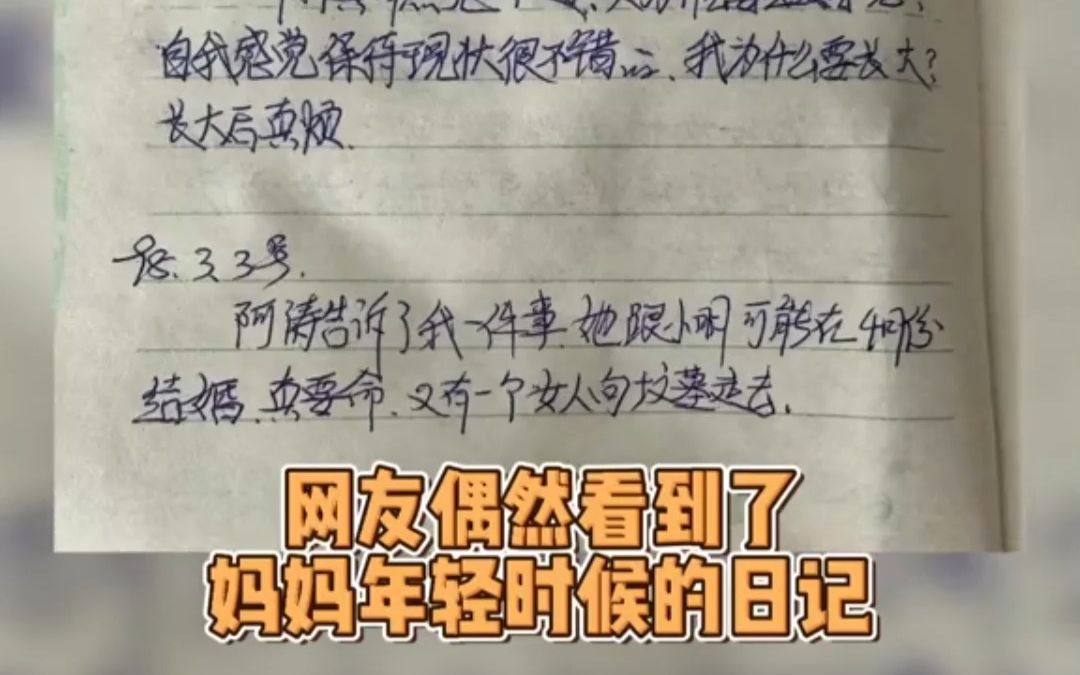 自我感觉保持现状很不错...我为什么要长大?
长大后真烦.
98.3.3号.
阿涛告诉了我一件事.她跟小明可能在4月份
结婚.真要命.又有一个女人向坟墓走去.
网友偶然看到了
妈妈年轻时候的日记